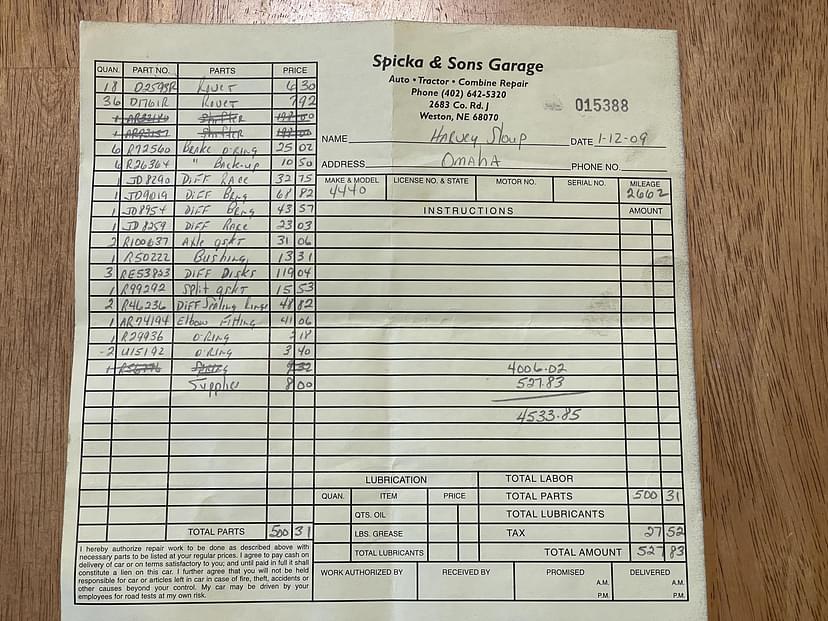 Spicka & Sons Garage
Auto • Tractor • Combine Repair
Phone (402) 642-5320
2683 Co. Rd. J
Weston, NE 68070
015388
NAME Harvey Stoup DATE 1-12-09
ADDRESS Omaha PHONE NO.
MAKE & MODEL LICENSE NO. & STATE MOTOR NO. SERIAL NO. MILEAGE
4440 2662
QUAN. PART NO. PARTS PRICE
18 D2595R Rivet 6 30
36 D1761R Rivet 7 92
1 Shifter
1 Shifter
6 R72560 Brake O-Ring 25 02
6 R26364 " Back-up 10 50
1 JD8290 Diff Race 32 75
1 JD9019 Diff Brng 68 82
1 JD8954 Diff Brng 43 57
1 JD8259 Diff Race 23 03
2 R100637 Axle gskt 31 06
1 R50222 Bushing 13 31
3 RE53823 Diff Disks 119 04
1 R99292 Split gskt 15 53
2 R46236 Diff Sealing Rings 48 82
1 AR74194 Elbow Fitting 41 06
1 R29936 O-Ring 2 18
-2 U15192 O-Ring 3 40
1 Spring
Supplies 8 00
TOTAL PARTS 500 31
INSTRUCTIONS AMOUNT
4006.02
527.83
4533.85
LUBRICATION
QUAN. ITEM PRICE
QTS. OIL
LBS. GREASE
TOTAL LUBRICANTS
TOTAL LABOR
TOTAL PARTS 500 31
TOTAL LUBRICANTS
TAX 27 52
TOTAL AMOUNT 527 83
WORK AUTHORIZED BY RECEIVED BY PROMISED DELIVERED
A.M. A.M.
P.M. P.M.
I hereby authorize repair work to be done as described above with
necessary parts to be listed at your regular prices. I agree to pay cash on
delivery of car or on terms satisfactory to you; and until paid in full it shall
constitute a lien on this car. I further agree that you will not be held
responsible for car or articles left in car in case of fire, theft, accidents or
other causes beyond your control. My car may be driven by your
employees for road tests at my own risk.